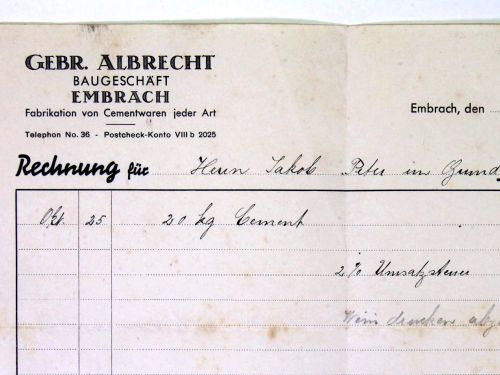 GEBR. ALBRECHT
BAUGESCHÄFT
EMBRACH
Fabrikation von Cementwaren jeder Art
Telephon No. 36 - Postcheck-Konto VIII b 2025
Embrach, den
Rechnung für Herrn Jakob Peter im Grund
Okt. 25 20 kg Cement
2% Umsatzsteuer